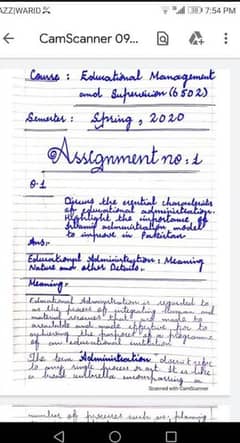 AZZ|WARID
7:54 PM
CamScanner 09...
Course : Educational Management
and Supervision (6502)
Semester : Spring, 2020
Assignment no: 1
Q.1
Discuss the essential characteristics
of educational administration.
Highlight the importance of
Islamic administration model
to improve in Pakistan
Ans:-
Educational Administration : Meaning
Nature and other Details.
Meaning:-
Educational Administration is regarded to
as the process of integrating human and
material resources and made to
available and made effective for to
achieving the purpose of a programme
of an educational institution
The term Administration doesn't refer
to any single process or act. It is like
a broad umbrella encompassing a
Scanned with CamScanner
number of processes such as, planning